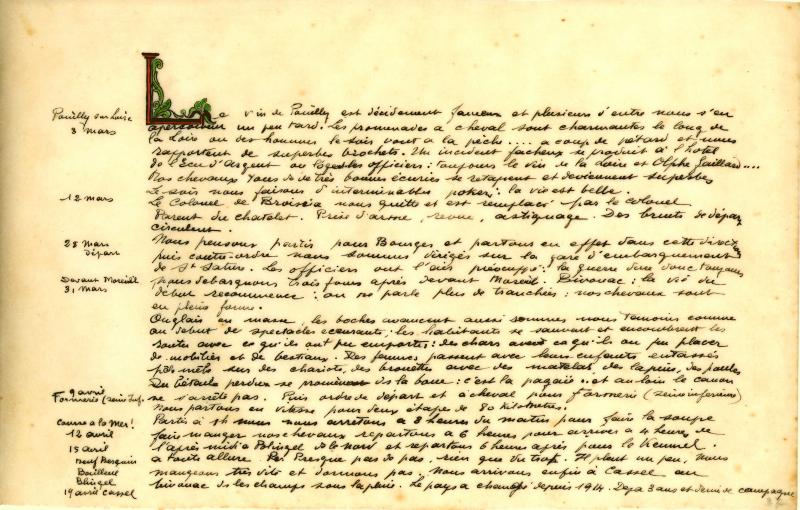 Pouilly sur Loire
3 mars
Le vin de Pouilly est décidement fameux et plusieurs d'entre nous s'en
aperçoivent un peu tard. Les promenades a cheval sont charmantes le long de
la Loire ou des hommes le soir vont a la pêche.... a coup de pétard et nous
rapportent de superbes brochets. Un incident facheux se produit à l'hotel
de l'Ecu d'Argent ou logent les officiers: toujours le vin de la Loire et Gaillard....
Nos chevaux dans de très bonnes écuries se retapent et deviennent superbes
Le soir nous faisons d'interminables poker: la vie est belle.
12 mars
Le Colonel de Broissia nous quitte et est remplacé par le colonel
Parent du chatelet. Prise d'arme, revue, astiquage. Des bruits de départ
circulent.
28 mars
départ
Nous pensons partir pour Bourges et partons en effet dans cette direction
puis contre-ordre nous sommes dirigés sur la gare d'embarquement
de St Satur. Les officiers ont l'air préoccupé: la guerre dure donc toujours
Devant Moreuil
31 mars
nous debarquons trois jours après devant Moreuil. Bivouac: la vie du
debut recommence: on ne parle plus de tranchées: nos chevaux sont
en pleine forme.
Anglais en masse, les boches avancent aussi sommes nous temoins comme
au debut de spectacles ecoeurants: les habitants se sauvent et encombrent les
routes avec ce qu'ils ont pu emporter: des chars avec ce qu'ils ont pu placer
de mobilier et de bestiaux. Des femmes passent avec leurs enfants entassés
pêle mêle sur des chariots, des brouettes avec des matelas, des lapins, des poules
Du bétail perdu se promène ds la boue: c'est la pagaïe... et au loin le canon
9 avril
Formerie (Seine Inf.)
ne s'arrête pas. Puis ordre de départ et à cheval pour Formerie (Seine inferieure)
Nous partons en vitesse pour deux étapes de 80 kilometres.
Course a la Mer!
12 avril
Partis à 1h nous nous arrêtons a 8 heures du matin pour faire la soupe
faire manger nos chevaux repartons a 6 heures pour arriver a 4 heures de
15 avril
l'après midi a Blingel ds le nord et repartons 6 heures après pour le
Neuf Berquin
à toute allure. Presque pas de pas, rien que du trot. Il pleut un peu, nous
Bailleul
Blingel
mangeons très vite et dormons pas. Nous arrivons enfin à Cassel au
19 avril Cassel
bivouac ds les champs sous la pluie. Le pays a changé depuis 1914. Deja 3 ans et demi de campagne